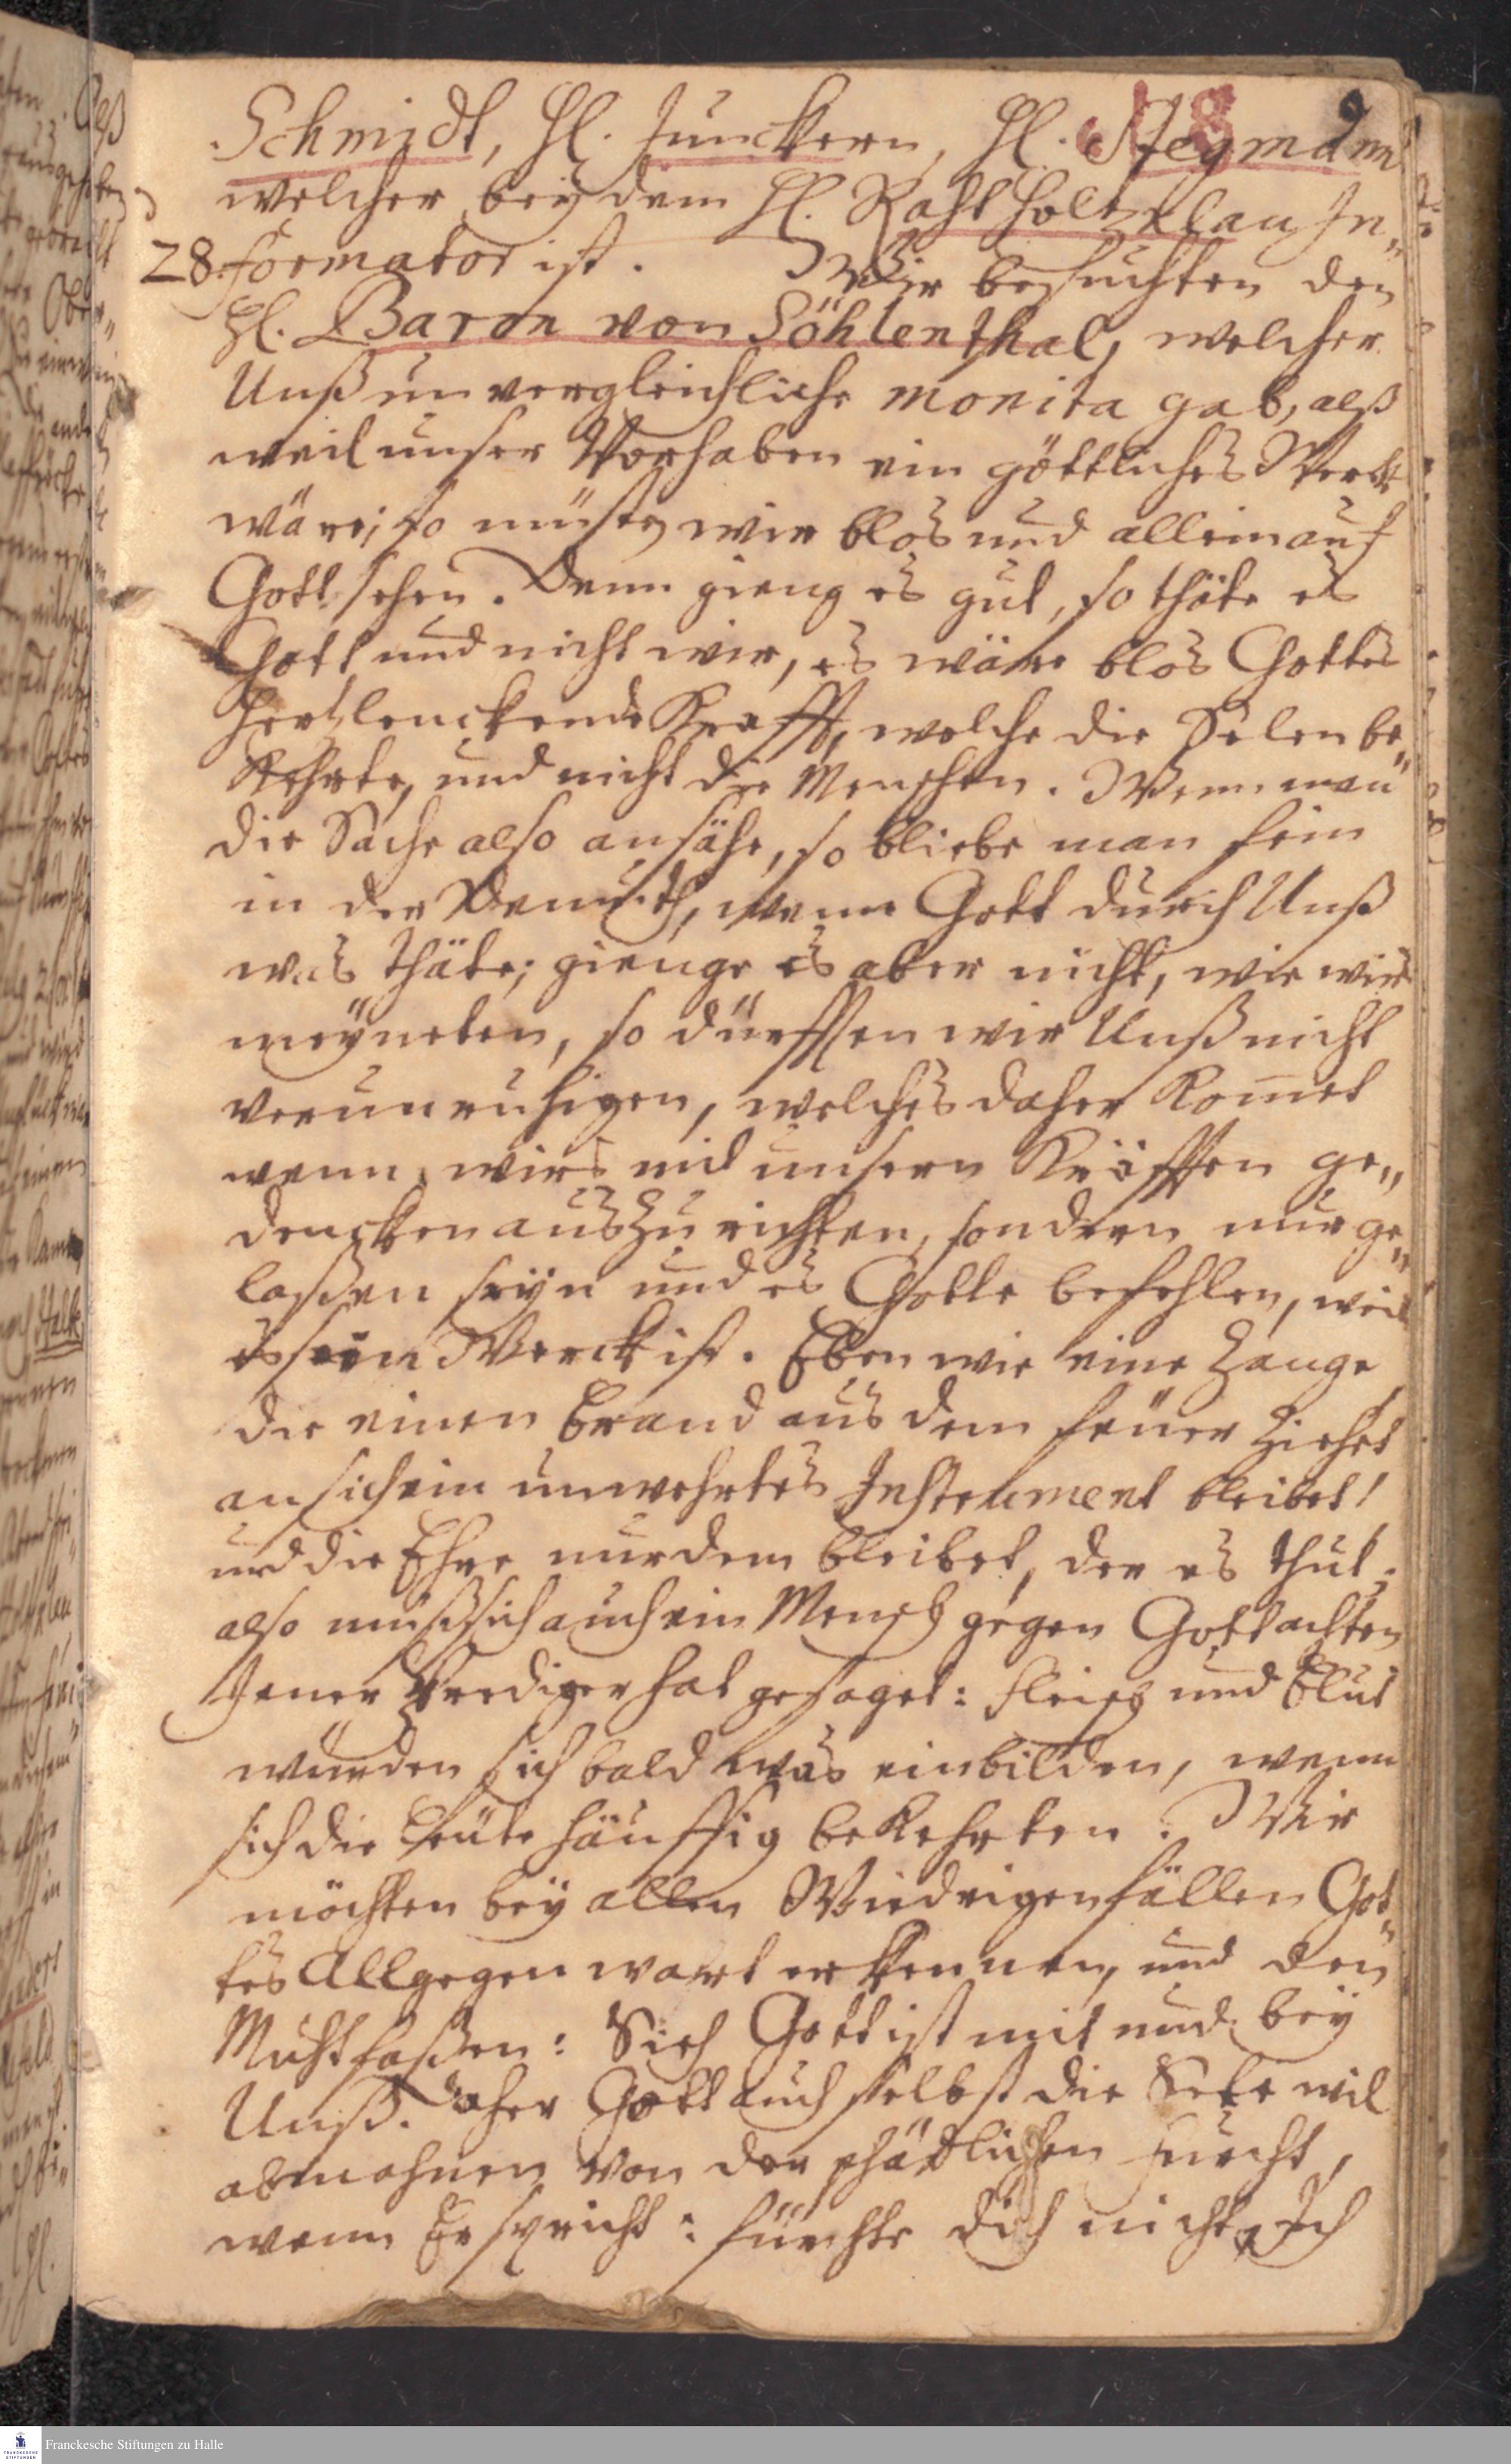 18 9
Schmidt, H. Junckern, H. Stegmann
welcher bey dem H. Raht Holtzklau In„
28. formator ist. Wir besuchten den
H. Baron von Söhlenthal, welcher
Unß unvergleichliche monita gab, alß
weil unser Vorhaben ein göttliches Werck
wäre; so müsten wir blos und allein auf
Gott sehen. Denn gieng es gut, so thäte es
Gott und nicht wir, es wäre blos Gottes
Hertzlenckende Krafft, welche die Selen be„
kehrte, und nicht die Menschen. Wenn man
die Sache also ansähe, so bliebe man fein
in der Demuth, wenn Gott durch Unß
was thäte; gienge es aber nicht, wie wirs
meyneten, so dürfften wir Unß nicht
verunruhigen, welches daher komet
wenn wirs mit unsern Kräfften ge„
dencken auszurichten, sondern nur ge„
laßen seyn und es Gotte befehlen, weil
es sein Werck ist. Eben wie eine Zange
die einen Brand aus dem feüer ziehet
an sich ein unwehrtes Instrument bleibet!
und die Ehre nur dem bleibet, der es thut;
also muß sich auch ein Mensch gegen Gott achten
Jener Prediger hat gesaget: fleisch und Blut
würden sich bald was einbilden, wenn
sich die Leüte häuffig bekehrten. Wir
möchten bey allen Wiedrigen fällen Got„
tes Allgegenwart erkennen, und den
Muht faßen: Sieh Gott ist mit und bey
Unß. daher Gott auch selbst die Sele wil
abmahnen von der schädlichen furcht,
wenn Er spricht: fürchte dich nicht, Ich
Franckesche Stiftungen zu Halle